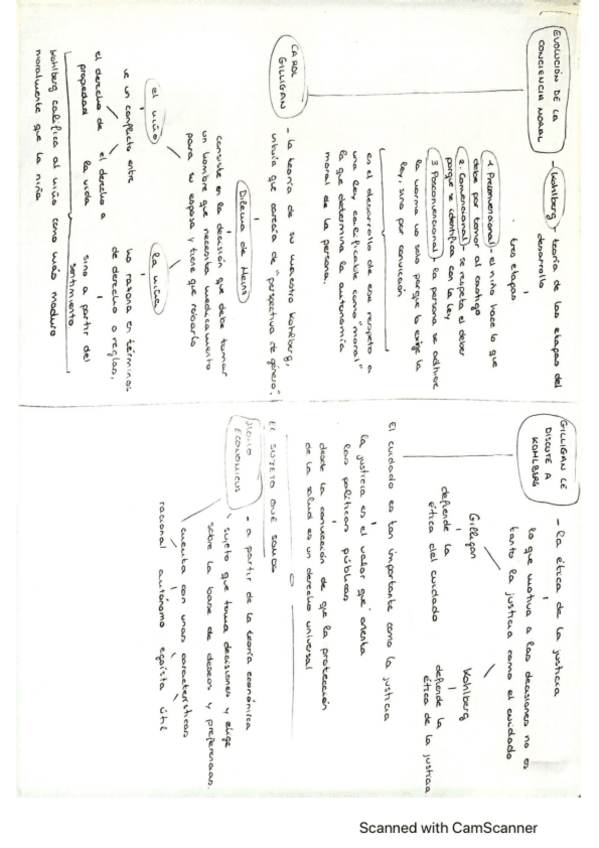 EVOLUCIÓN DE LA
CONCIENCIA MORAL
- Kohlberg, teoría de las etapas del
desarrollo
tres etapas
1. Preconvencional - el niño hace lo que
debe por temor al castigo
2. Convencional - se respeta el deber
porque se identifica con la ley
3. Posconvencional - la persona se adhiere
la norma no solo porque lo exige la
ley, sino por convicción
es el desarrollo de ese respeto a
una ley calificable como "moral"
la que determina la autonomía
moral de la persona.
CAROL
GILLIGAN
- la teoría de su maestro Kohlberg,
intuía que carecía de "perspectiva de género".
Dilema de Heinz
consiste en la decisión que debe tomar
un hombre que necesita medicamento
para su esposa y tiene que robarlo
el niño
ve un conflicto entre
el derecho de
propiedad
el derecho a
la vida
la niña
no razona en términos
de derecho o reglas,
sino a partir del
sentimiento
Kohlberg califica al niño como más maduro
moralmente que la niña
GILLIGAN LE
DISCUTE A
KOHLBERG
- la ética de la justicia
lo que motiva a las decisiones no es
tanto la justicia como el cuidado
Gilligan
defiende la
ética del cuidado
Kohlberg
defiende la
ética de la justicia
El cuidado es tan importante como la justicia
la justicia es el valor que orienta
las políticas públicas
desde la convicción de que la protección
de la salud es un derecho universal
EL SUJETO QUE SOMOS
HOMO
ECONOMICUS
- a partir de la teoría económica
sujeto que toma decisiones y elige
sobre la base de deseos y preferencias.
cuenta con unas características
racional autónomo egoísta útil
Scanned with CamScanner